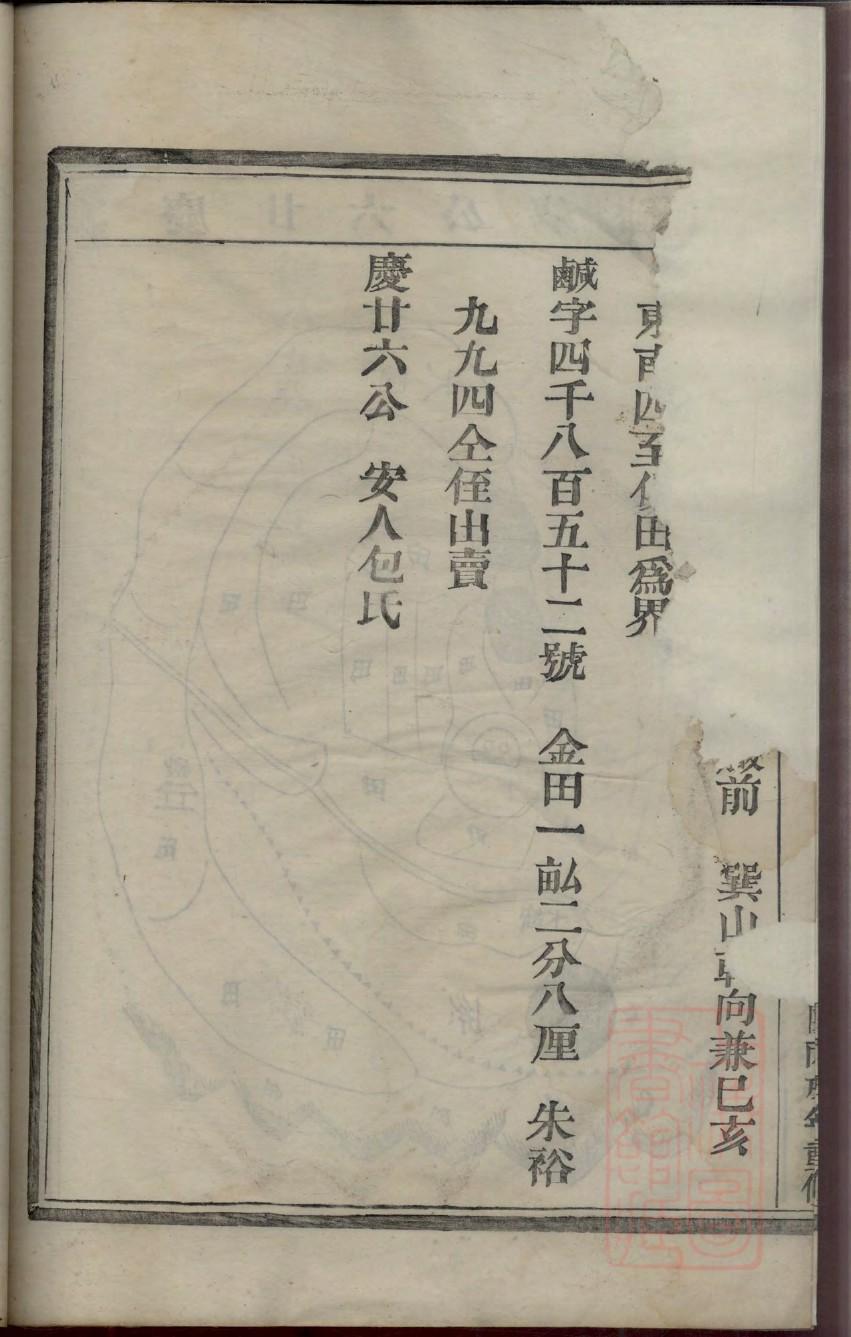 前 巽山 向兼巳亥
東南四至 田爲界
鹹字四千八百五十二號 金田一畝二分八厘 朱裕
九九四仝侄出賣
慶廿六公 安人包氏